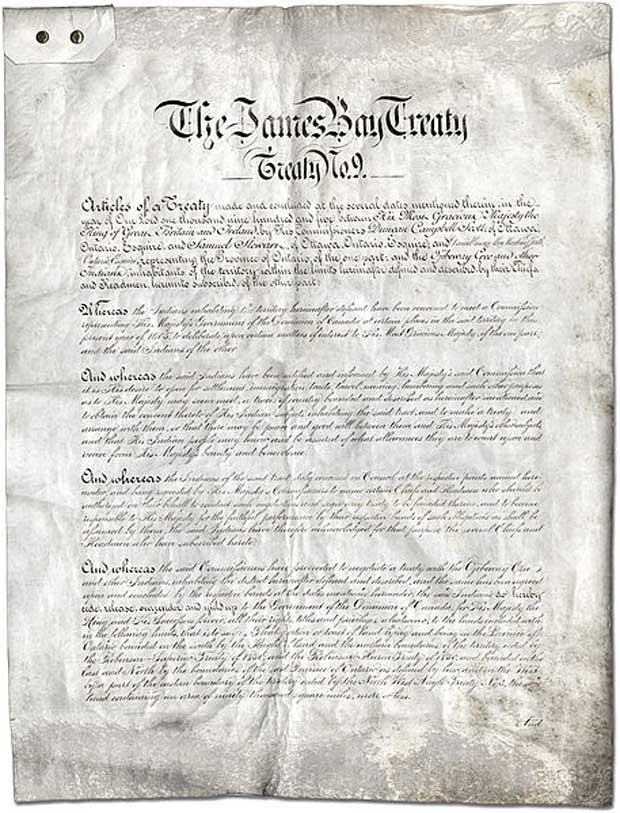 The James Bay Treaty
Treaty No. 9.
Articles of a Treaty made and concluded at the several dates mentioned therein, in the
year of Our Lord one thousand nine hundred and five between His Most Gracious Majesty the
King of Great Britain and Ireland, by His Commissioners Duncan Campbell Scott, of Ottawa,
Ontario, Esquire, and Samuel Stewart, of Ottawa, Ontario, Esquire; and
Ontario, Esquire, representing the Province of Ontario, of the one part; and the Ojibeway Cree and other
Indians, inhabitants of the territory within the limits hereinafter defined and described, by their Chiefs
and Headmen hereunto subscribed, of the other part:
Whereas the Indians inhabiting the territory hereinafter defined have been convened to meet a Commission
representing His Majesty's Government of the Dominion of Canada at certain places in the said territory in this
present year of 1905, to deliberate upon certain matters of interest to His Most Gracious Majesty, of the one part,
and the said Indians of the other
And whereas the said Indians have been notified and informed by His Majesty's said Commission that
it is His desire to open for settlement, immigration, trade, travel, mining, lumbering and such other purposes
as to His Majesty may seem meet, a tract of country bounded and described as hereinafter mentioned, and
to obtain the consent thereto of His Indian subjects inhabiting the said tract, and to make a treaty and
arrange with them, so that there may be peace and good will between them and His Majesty's other subjects,
and that His Indian people may know and be assured of what allowances they are to count upon and
receive from His Majesty's bounty and benevolence.
And whereas the Indians of the said tract, duly convened in Council at the respective points named here-
under, and being requested by His Majesty's Commissioners to name certain Chiefs and Headmen who should be
authorized on their behalf to conduct such negotiations and sign any treaty to be founded thereon, and to become
responsible to His Majesty for the faithful performance by their respective bands of such obligations as shall be
assumed by them, the said Indians have therefore acknowledged for that purpose the several Chiefs and
Headmen who have subscribed hereto.
And whereas the said Commissioners have proceeded to negotiate a treaty with the Ojibeway, Cree
and other Indians, inhabiting the district hereinafter defined and described, and the same has been agreed
upon and concluded by the respective bands at the dates mentioned hereunder, the said Indians do hereby
cede, release, surrender and yield up to the Government of the Dominion of Canada, for His Majesty the
King and His Successors forever, all their rights titles and privileges whatsoever, to the lands included within
the following limits, that is to say: A that portion or tract of land lying and being in the Province of
Ontario, bounded on the south by the height of land and the northern boundaries of the territory ceded by
the Robinson-Superior Treaty of 1850, and the Robinson-Huron Treaty of 1850, and bounded on the
East and North by the boundaries of the said Province of Ontario as defined by law, and on the West
by a part of the eastern boundary of the territory ceded by the North West Angle Treaty No. 3; the said
land containing an area of ninety thousand square miles, more or less.
And